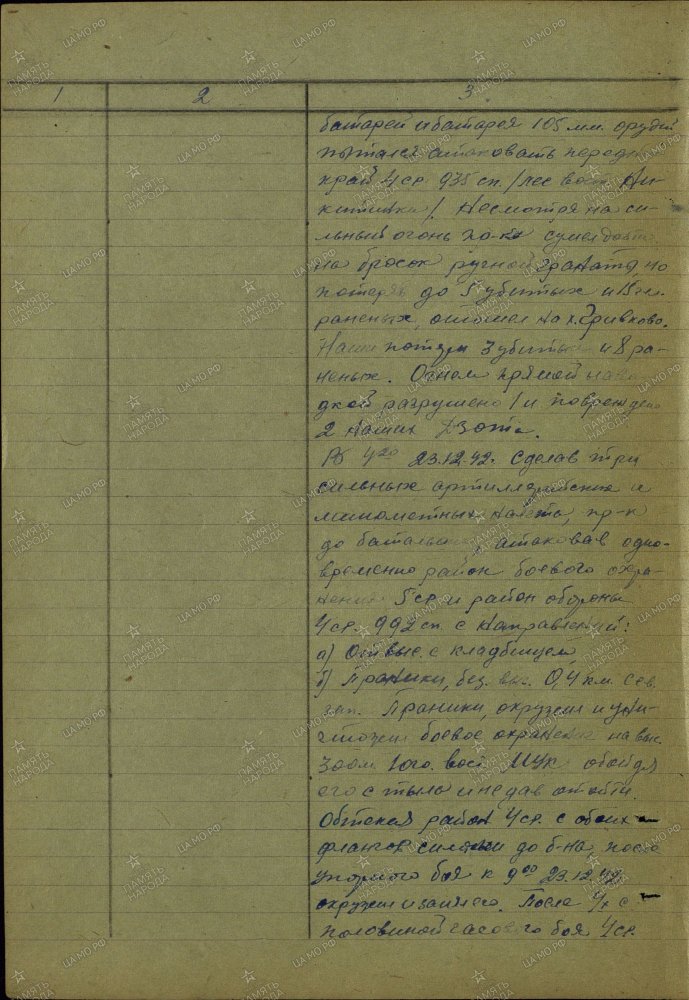 1 2 3
батарей и батарея 105 мм. орудий
пытался атаковать передний
край 4 ср. 935 сп. /лес вост. Ни-
китинки/. Несмотря на си-
льный огонь пр-к сумел дойти
на бросок ручной гранаты, но
потеряв до 5 убитых и 15
раненых, отошел на х. Гривково.
Наши потери 3 убитых и 8 ра-
неных. Огнем прямой наво-
дкой разрушено 1 и повреждено
2 наших Дзота.
В 4²⁰ 23.12.42. сделав три
сильных артиллерийских и
минометных налета, пр-к
до батальона, атаковав одно-
временно район боевого охра-
нения 5 ср. и район обороны
4 ср. 992 сп. с направлений:
а) От выс. с кладбищем
б) Праники, без. выс. 0,4 км. сев.
зап. Праники, окружил и уни-
чтожил боевое охранение на выс.
300 м. юго. вост. обойдя
его с тыла и не дав отойти.
Обтекая район 4 ср. с обоих
флангов силами до б-на, после
упорного боя к 9⁰⁰ 23.12.42
окружил и занял его. После 4х с
половиной часового боя 4 ср.